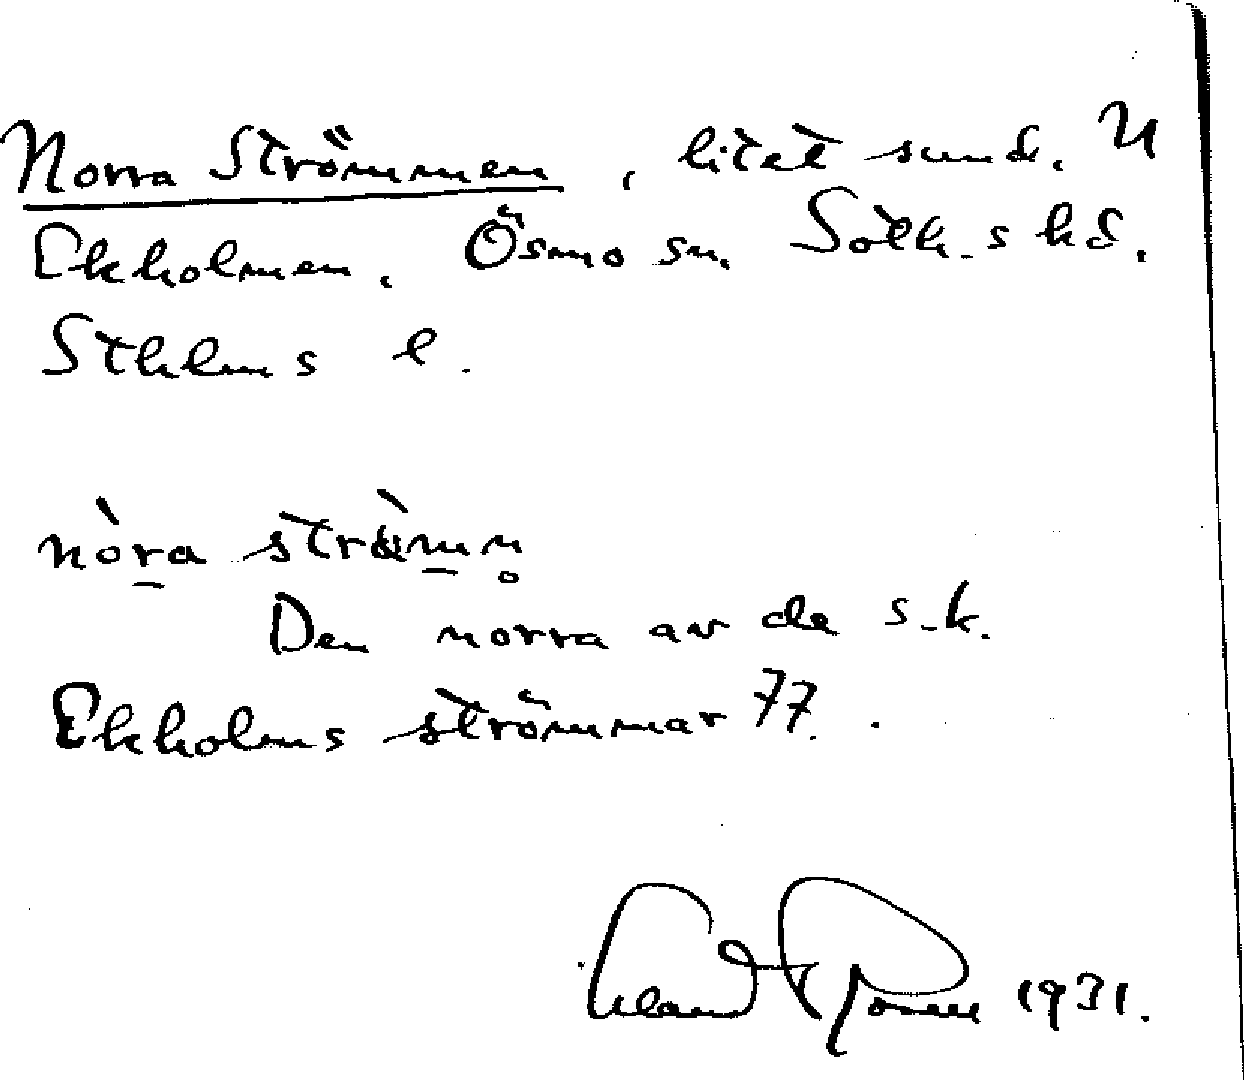 Norra Strömmen, litet sund. N
Ekholmen, Ösmo sn, Soth-s hd,
Sthlms l.
nòra stràmn
Den norra av de s.k.
Ekholms strömmar 77.
1931.